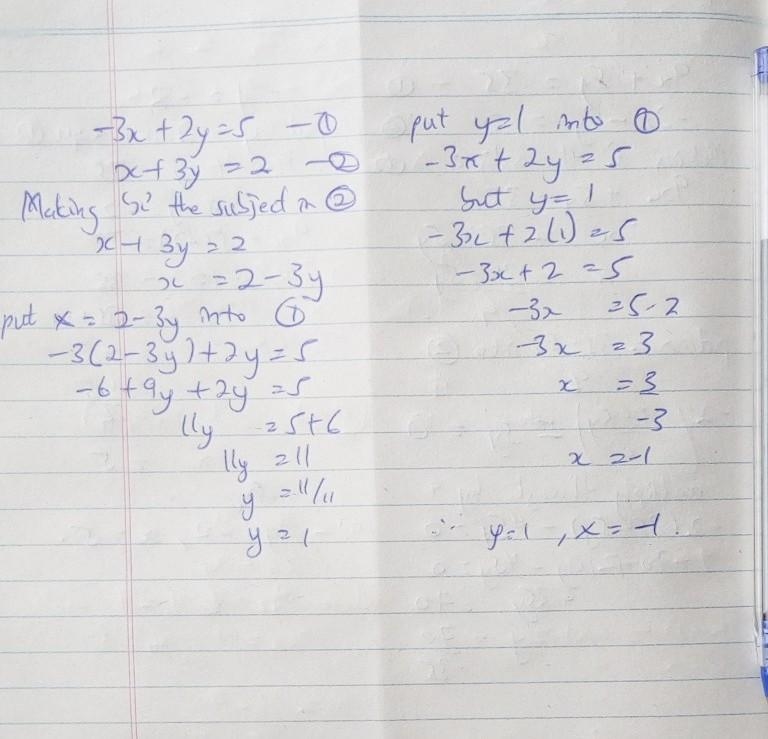 -3x + 2y = 5 — ①
x + 3y = 2 — ②
Making 'x' the subject in ②
x + 3y = 2
x = 2 - 3y
put x = 2 - 3y into ①
-3(2 - 3y) + 2y = 5
-6 + 9y + 2y = 5
11y = 5 + 6
11y = 11
y = 11/11
y = 1
put y = 1 into ①
-3x + 2y = 5
but y = 1
-3x + 2(1) = 5
-3x + 2 = 5
-3x = 5 - 2
-3x = 3
x = 3
-3
x = -1
∴ y = 1, x = -1.